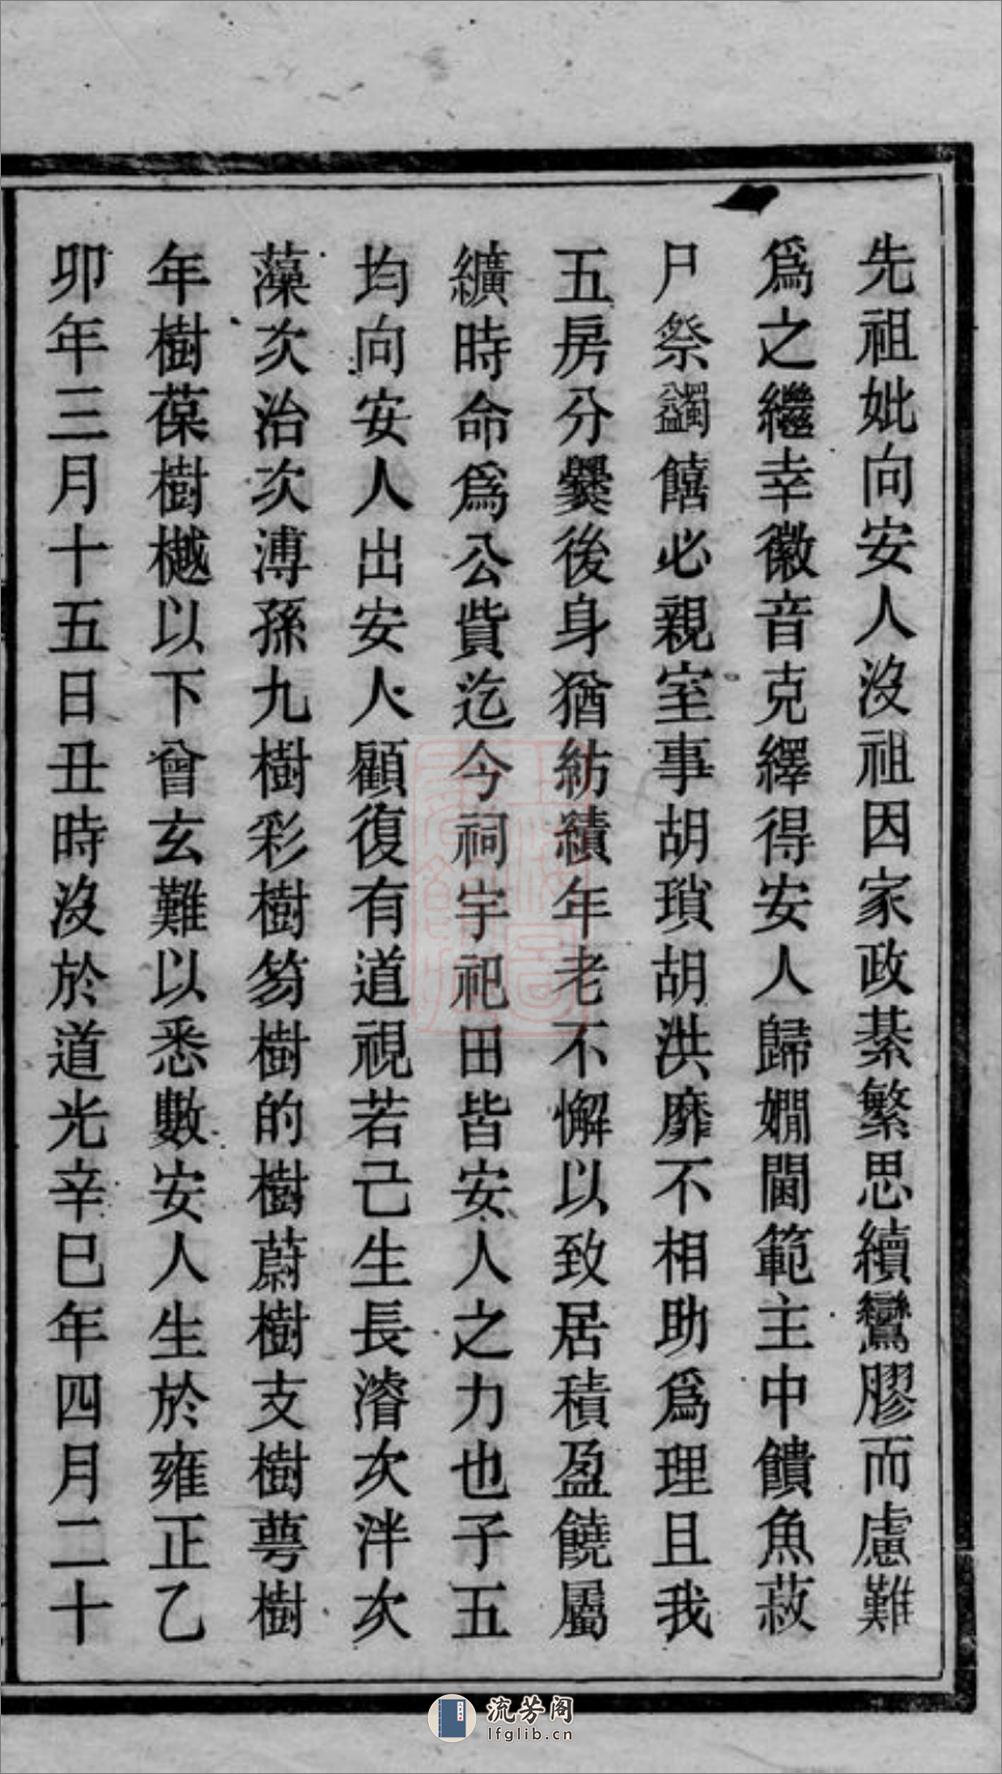 先祖妣向安人沒祖因家政綦繁思續鸞膠而慮難
爲之繼幸徽音克繹得安人歸嫺閫範主中饋魚菽
尸祭蠲饎必親室事胡瑣胡洪靡不相助爲理且我
五房分爨後身猶紡績年老不懈以致居積盈饒屬
纊時命爲公貲迄今祠宇祀田皆安人之力也子五
均向安人出安人顧復有道視若己生長濬次泮次
藻次治次溥孫九樹彩樹芴樹的樹蔚樹支樹萼樹
年樹葆樹樾以下曾玄難以悉數安人生於雍正乙
卯年三月十五日丑時沒於道光辛巳年四月二十
流芳阁
lfglib.cn